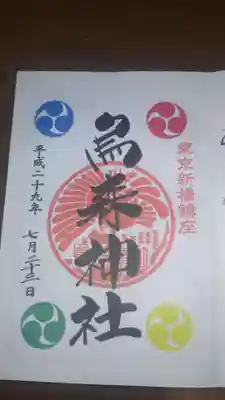 東京新橋鎮座
烏森神社
平成二十九年
七月二十三日